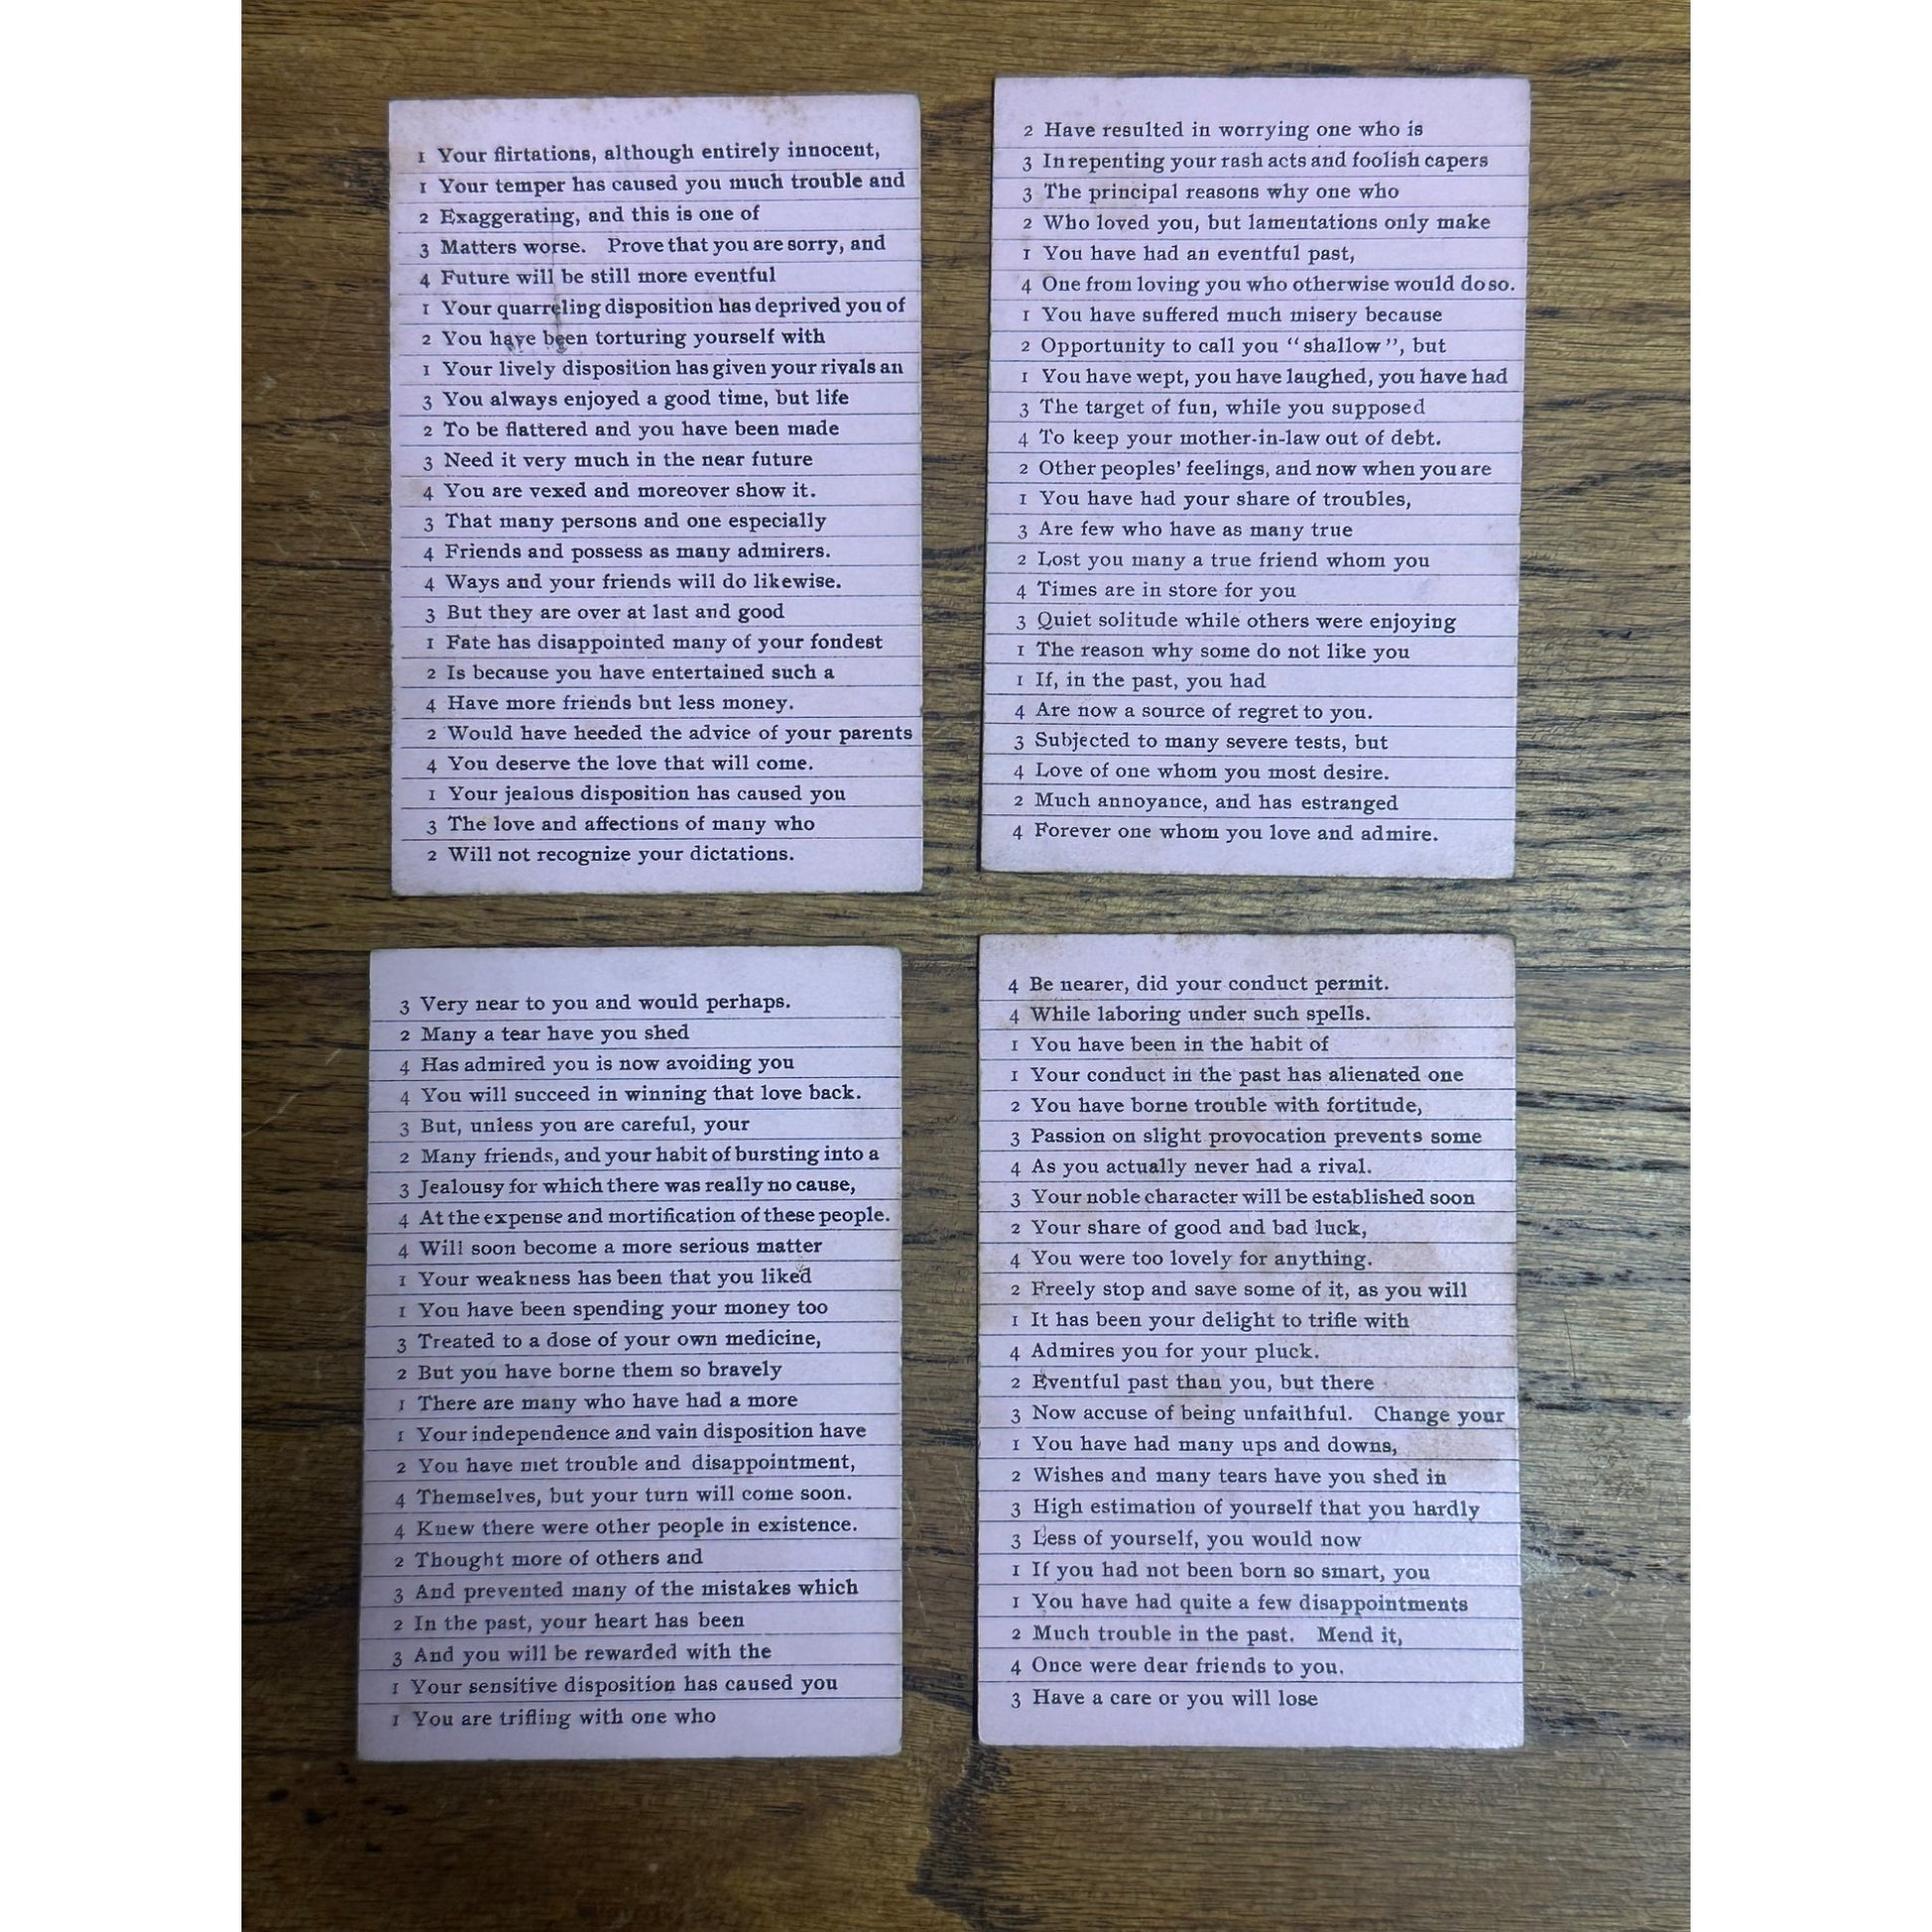 1 Your flirtations, although entirely innocent,
1 Your temper has caused you much trouble and
2 Exaggerating, and this is one of
3 Matters worse. Prove that you are sorry, and
4 Future will be still more eventful
1 Your quarreling disposition has deprived you of
2 You have been torturing yourself with
1 Your lively disposition has given your rivals an
3 You always enjoyed a good time, but life
2 To be flattered and you have been made
3 Need it very much in the near future
4 You are vexed and moreover show it.
3 That many persons and one especially
4 Friends and possess as many admirers.
4 Ways and your friends will do likewise.
3 But they are over at last and good
1 Fate has disappointed many of your fondest
2 Is because you have entertained such a
4 Have more friends but less money.
2 Would have heeded the advice of your parents
4 You deserve the love that will come.
1 Your jealous disposition has caused you
3 The love and affections of many who
2 Will not recognize your dictations.
2 Have resulted in worrying one who is
3 In repenting your rash acts and foolish capers
3 The principal reasons why one who
2 Who loved you, but lamentations only make
1 You have had an eventful past,
4 One from loving you who otherwise would do so.
1 You have suffered much misery because
2 Opportunity to call you “shallow”, but
1 You have wept, you have laughed, you have had
3 The target of fun, while you supposed
4 To keep your mother-in-law out of debt.
2 Other peoples’ feelings, and now when you are
1 You have had your share of troubles,
3 Are few who have as many true
2 Lost you many a true friend whom you
4 Times are in store for you
3 Quiet solitude while others were enjoying
1 The reason why some do not like you
1 If, in the past, you had
4 Are now a source of regret to you.
3 Subjected to many severe tests, but
4 Love of one whom you most desire.
2 Much annoyance, and has estranged
4 Forever one whom you love and admire.
3 Very near to you and would perhaps.
2 Many a tear have you shed
4 Has admired you is now avoiding you
4 You will succeed in winning that love back.
3 But, unless you are careful, your
2 Many friends, and your habit of bursting into a
3 Jealousy for which there was really no cause,
4 At the expense and mortification of these people.
4 Will soon become a more serious matter
1 Your weakness has been that you liked
1 You have been spending your money too
3 Treated to a dose of your own medicine,
2 But you have borne them so bravely
1 There are many who have had a more
1 Your independence and vain disposition have
2 You have met trouble and disappointment,
4 Themselves, but your turn will come soon.
4 Knew there were other people in existence.
2 Thought more of others and
3 And prevented many of the mistakes which
2 In the past, your heart has been
3 And you will be rewarded with the
1 Your sensitive disposition has caused you
1 You are trifling with one who
4 Be nearer, did your conduct permit.
4 While laboring under such spells.
1 You have been in the habit of
1 Your conduct in the past has alienated one
2 You have borne trouble with fortitude,
3 Passion on slight provocation prevents some
4 As you actually never had a rival.
3 Your noble character will be established soon
2 Your share of good and bad luck,
4 You were too lovely for anything.
2 Freely stop and save some of it, as you will
1 It has been your delight to trifle with
4 Admires you for your pluck.
2 Eventful past than you, but there
3 Now accuse of being unfaithful. Change your
1 You have had many ups and downs,
2 Wishes and many tears have you shed in
3 High estimation of yourself that you hardly
3 Less of yourself, you would now
1 If you had not been born so smart, you
1 You have had quite a few disappointments
2 Much trouble in the past. Mend it,
4 Once were dear friends to you.
3 Have a care or you will lose